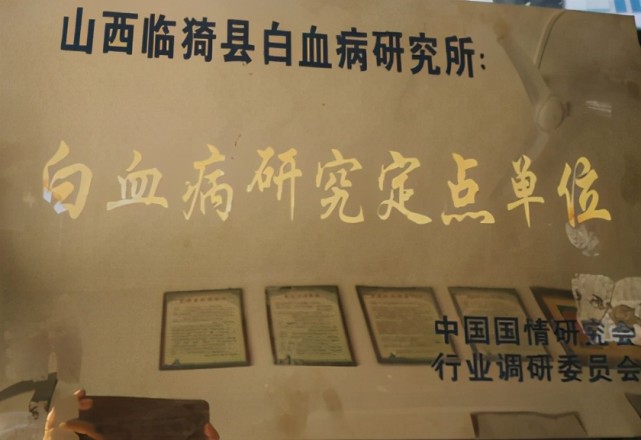 山西临猗县白血病研究所:
白血病研究定点单位
中国国情研究会
行业调研委员会